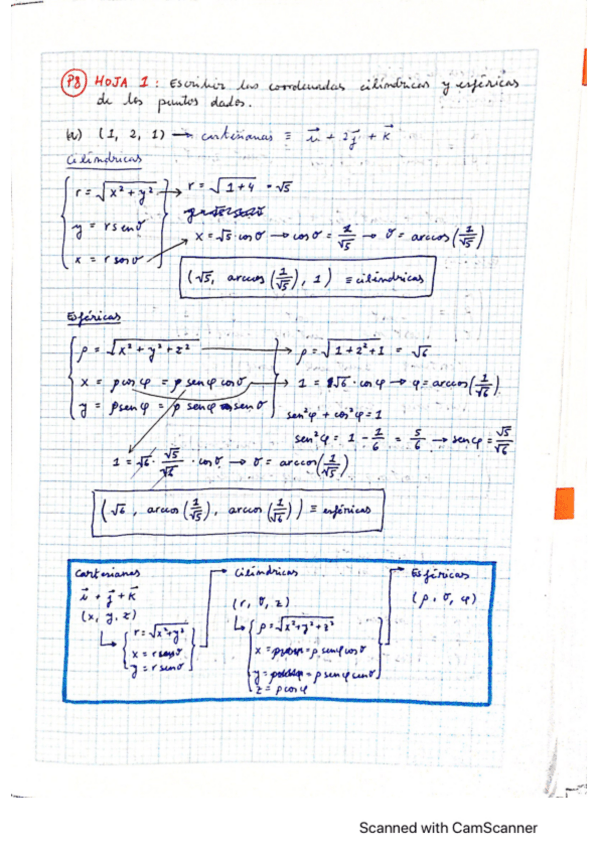 P8 HOJA 1: Escribir las coordenadas cilíndricas y esféricas
de los puntos dados.
a) (1, 2, 1) → cartesianas ≡ i⃗ + 2j⃗ + k⃗
Cilíndricas
r = √(x² + y²) → r = √(1+4) = √5
y = r senθ
x = √5 · cosθ → cosθ = 1/√5 → θ = arccos(1/√5)
x = r cosθ
(√5, arccos(1/√5), 1) ≡ cilíndricas
Esféricas
ρ = √(x² + y² + z²) → ρ = √(1+2²+1) = √6
x = ρcosφ = ρ senφ cosθ → 1 = √6 · cosφ → φ = arccos(1/√6)
y = ρsenφ = ρ senφ senθ
sen²φ + cos²φ = 1
sen²φ = 1 - 1/6 = 5/6 → senφ = √5/√6
1 = √6 · √5/√6 · cosθ → θ = arccos(1/√5)
(√6, arccos(1/√5), arccos(1/√6)) ≡ esféricas
Cartesianas → Cilíndricas → Esféricas
i⃗ + j⃗ + k⃗
(x, y, z)
(r, θ, z)
(ρ, θ, φ)
r = √(x²+y²)
x = r cosθ
y = r senθ
ρ = √(x²+y²+z²)
x = ρ senφ cosθ
y = ρ senφ senθ
z = ρ cosφ
Scanned with CamScanner